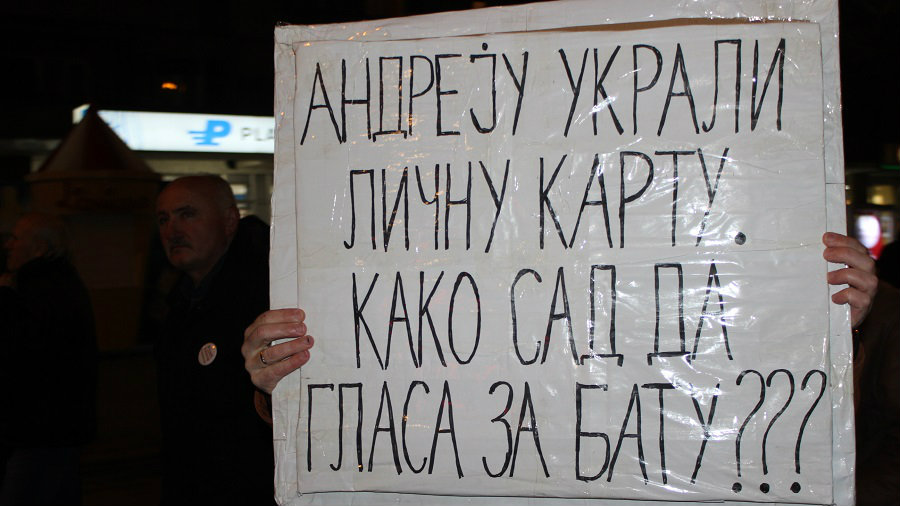 АНДРЕЈУ УКРАЛИ
ЛИЧНУ КАРТУ.
КАКО САД ДА
ГЛАСА ЗА БАТУ???